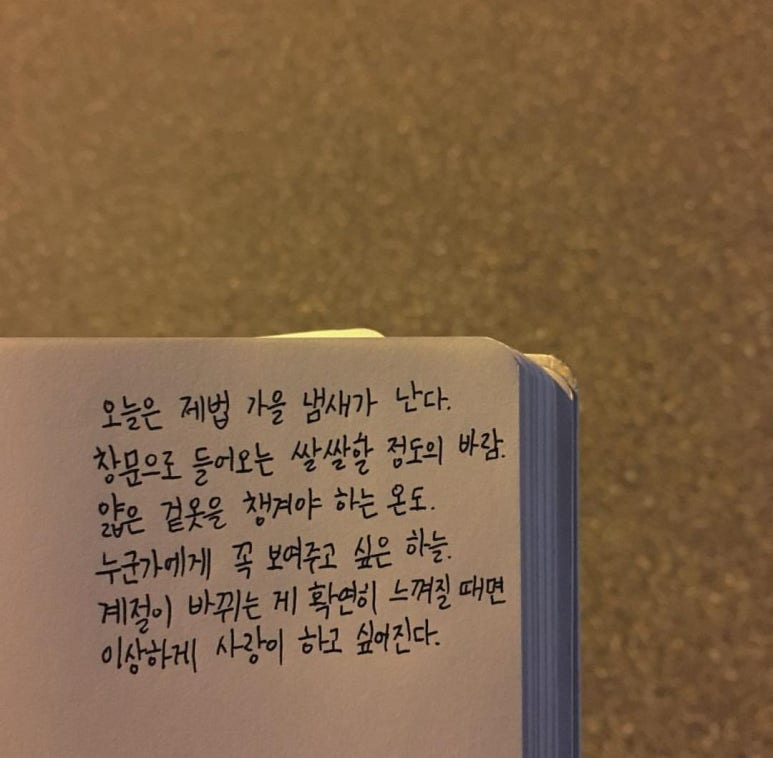 오늘은 제법 가을 냄새가 난다.
창문으로 들어오는 쌀쌀할 정도의 바람.
얇은 겉옷을 챙겨야 하는 온도.
누군가에게 꼭 보여주고 싶은 하늘.
계절이 바뀌는 게 확연히 느껴질 때면
이상하게 사랑이 하고 싶어진다.